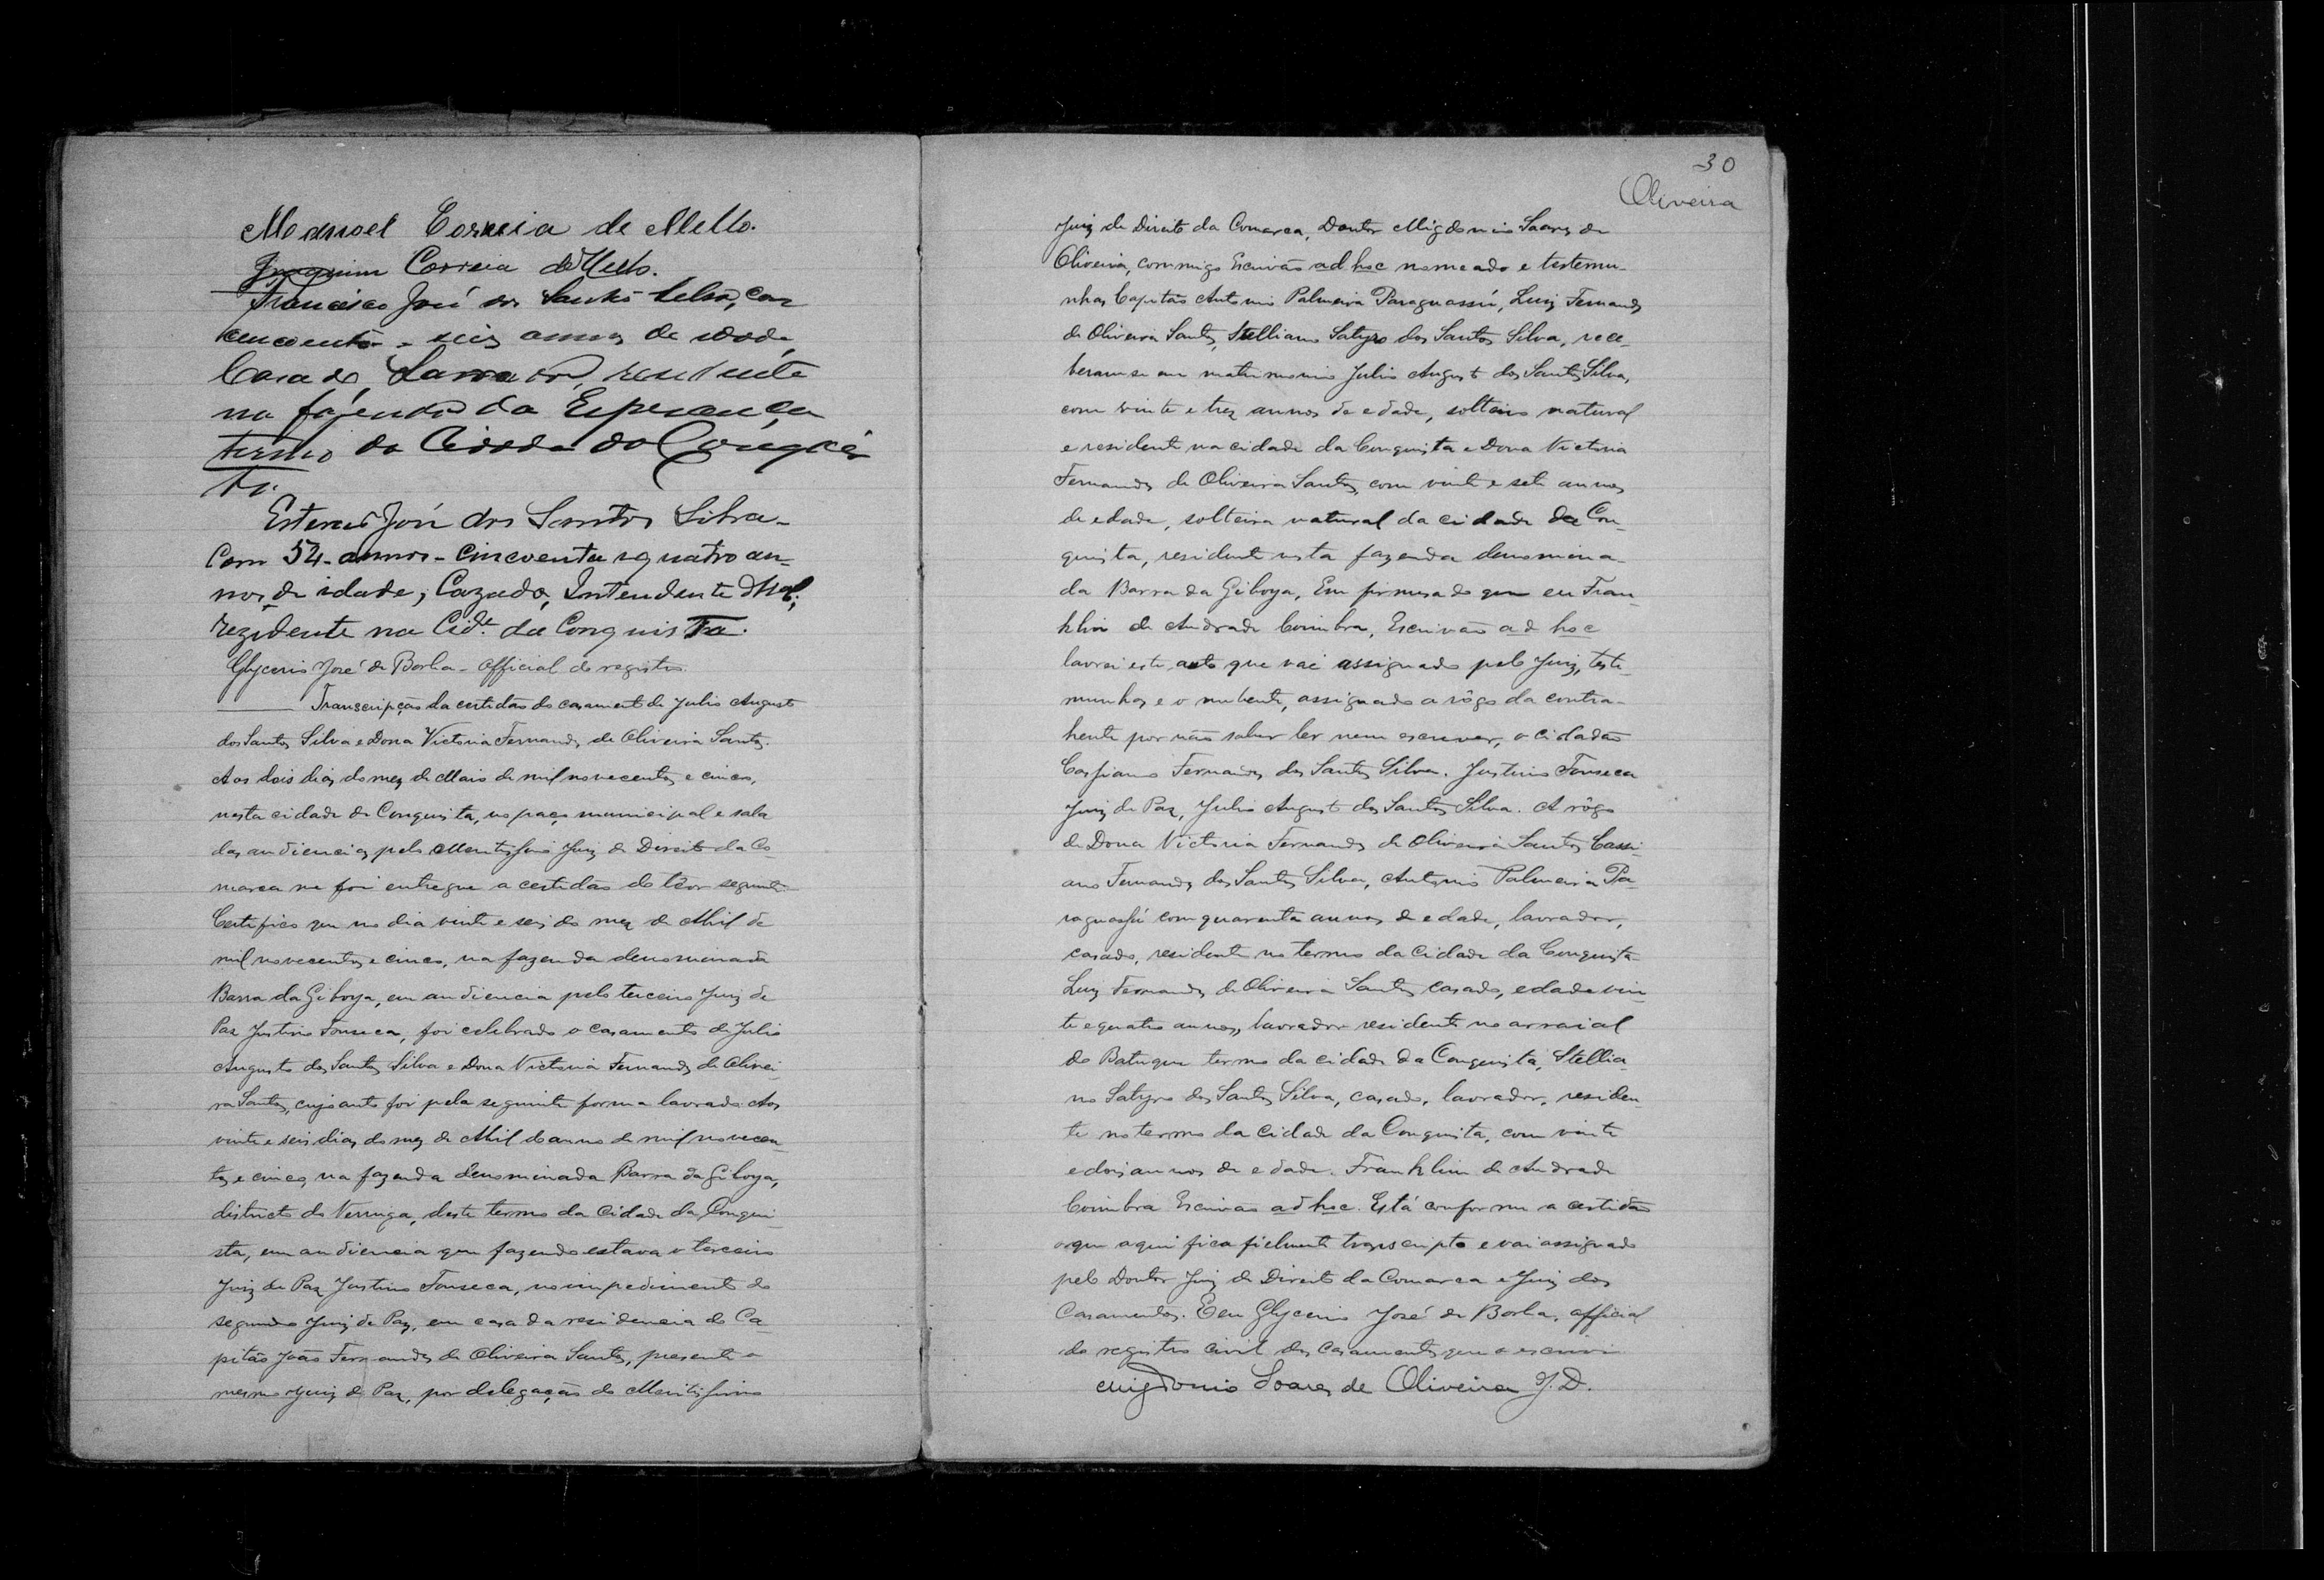 Manoel Correia de Mello.
Joaquim Correia de Mello.
Francisco José dos Santos Silva, com
cencoenta e seis annos de idade,
Casado, Lavrador, residente
na fazenda da Esperança
termo da Cidade da Conquis
ta.
Esteves José dos Santos Silva
Com 54 - annos - Cincoenta e quatro an-
nos de idade, Cazado, Intendente
rezidente na Cid.e da Conquista.
Glycerio José da Borba - official do registro.
Transcripção da certidão do casamento de Julio Augusto
dos Santos Silva e Dona Victoria Fernandes de Oliveira Santos.
Aos dois dias do mez de Maio de mil novecentos e cinco,
nesta cidade da Conquista, no paço municipal e sala
das audiencias pelo Meritissimo Juiz de Direito da Co-
marca me foi entregue a certidão do têor seguinte:
Certifico que no dia vinte e seis do mez de Abril de
mil novecentos e cinco, na fazenda denominada
Barra da Giboya, em audiencia pelo terceiro Juiz de
Paz Justino Fonseca, foi celebrado o casamento de Julio
Augusto dos Santos Silva e Dona Victoria Fernandes de Olivei-
ra Santos, cujo auto foi pela seguinte forma lavrado: Aos
vinte e seis dias do mez de Abril do anno de mil novecen-
tos e cinco, na fazenda denominada Barra da Giboya,
districto do Verruga, deste termo da Cidade da Conqui-
sta, em audiencia que fazendo estava o terceiro
Juiz de Paz Justino Fonseca, no impedimento do
segundo Juiz de Paz, em casa da residencia do Ca-
pitão João Fernandes de Oliveira Santos, presente o
mesmo Juiz de Paz, por delegação do Meritissimo
30
Oliveira
Juiz de Direito da Comarca, Doutor Migdonio Soares de
Oliveira, commigo Escrivão ad hoc nomeado e testemu-
nhas Capitão Antonio Palmeira Paraguassú, Luiz Fernandes
de Oliveira Santos, Stelliano Satyro dos Santos Silva, rece-
beram se em matrimonio Julio Augusto dos Santos Silva,
com vinte e trez annos de edade, solteiro natural
e residente na cidade da Conquista e Dona Victoria
Fernandes de Oliveira Santos, com vinte e sete annos
de edade, solteira natural da cidade da Con-
quista, residente nesta fazenda denomina-
da Barra da Giboya, Em firmesa do que eu Fran-
klin de Andrade Coimbra, Escrivão ad hoc
lavrei este auto que vai assignado pelo Juiz, teste-
munhas e o nubente, assignado a rôgo da contra-
hente por não saber ler nem escrever, o cidadão
Cassiano Fernandes dos Santos Silva. Justino Fonseca
Juiz de Paz, Julio Augusto dos Santos Silva. A rôgo
de Dona Victoria Fernandes de Oliveira Santos Cassi-
ano Fernandes dos Santos Silva, Antonio Palmeira Pa-
raguassú com quarenta annos de edade, lavrador,
casado, residente no termo da Cidade da Conquista
Luiz Fernandes de Oliveira Santos casado, edade vin-
te e quatro annos, lavrador residente no arraial
do Batuque termo da cidade da Conquista, Stellia-
no Satyro dos Santos Silva, casado, lavrador, residen-
te no termo da Cidade da Conquista, com vinte
e dois annos de edade. Franklin de Andrade
Coimbra Escrivão ad hoc. Está conforme a certidão
o que aqui fica fielmente transcripto e vai assignado
pelo Doutor Juiz de Direito da Comarca e Juiz dos
Casamentos. E eu Glycerio José da Borba, official
do registro civil dos casamentos que o escrevi
Migdonio Soares de Oliveira J. D.